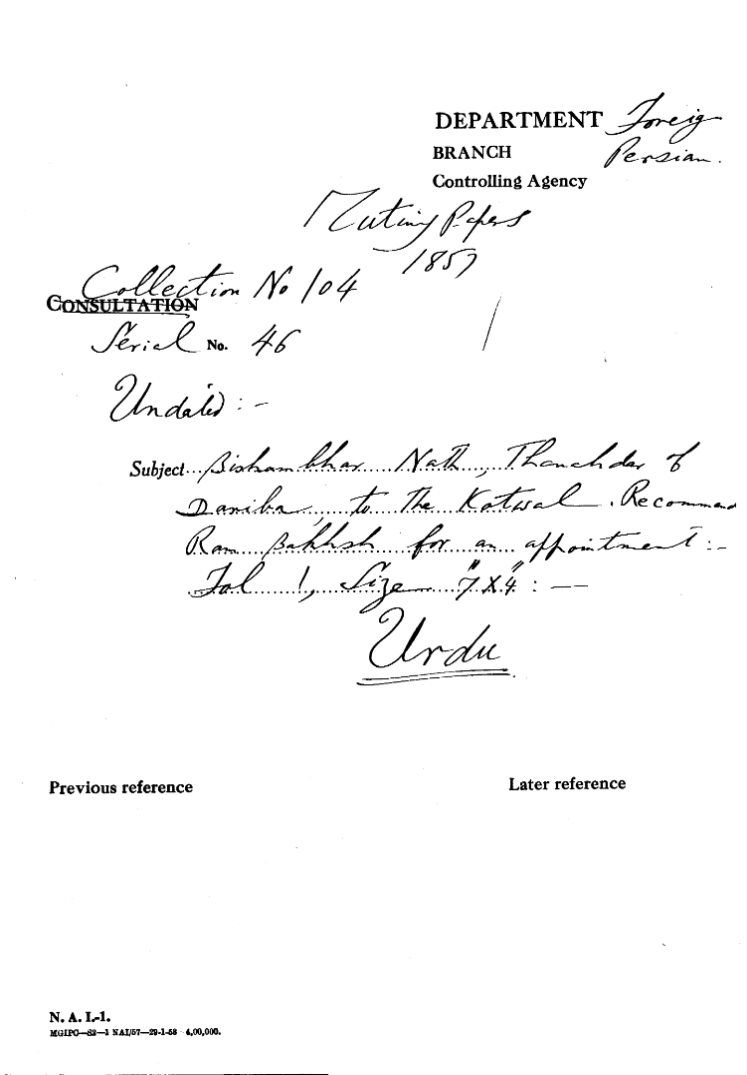 DEPARTMENT Foreig
BRANCH Persian.
Controlling Agency
Mutiny Papers
1857
Collection No 104
CONSULTATION
Serial No. 46
Undated :-
Subject Bishambhar Nath, Thanahdar of
Dariba, to the Kotwal. Recommend
Ram Bakhsh for an appointment :-
Fol 1, Size 7" X 4" : —
Urdu
Previous reference Later reference
N. A. I.-1.
MGIPC—S2—1 NAI/57—29-1-58 4,00,000.